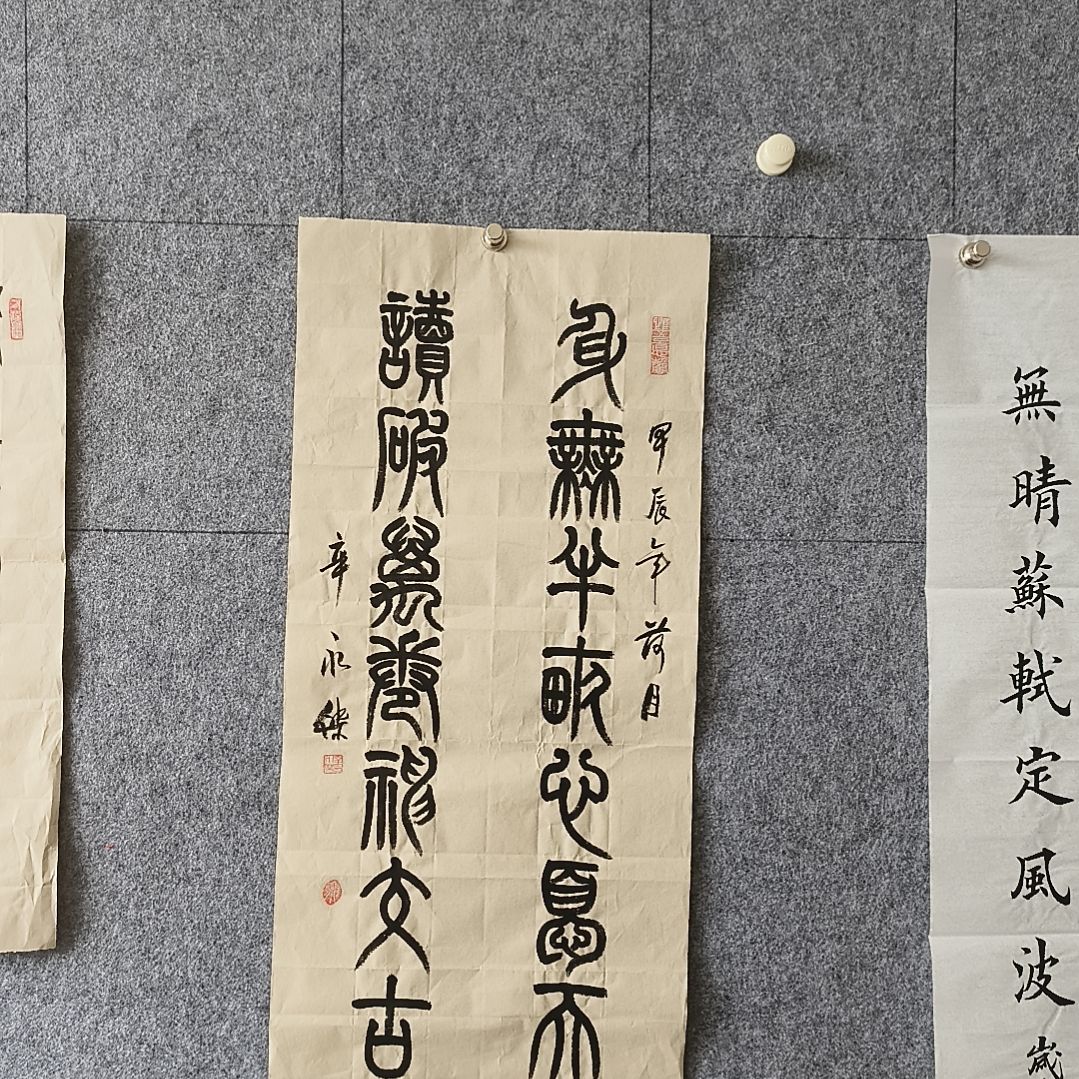 無晴蘇軾定風波歲
甲辰年荷月
身無半畝心憂天
讀破萬卷神交古
辛永傑